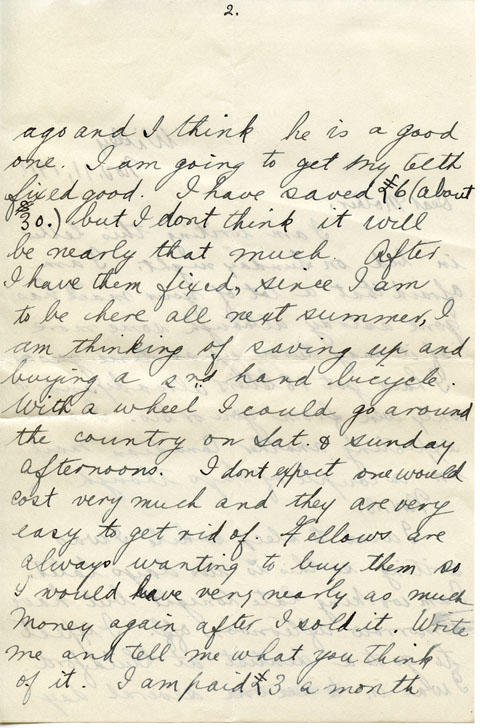 2.
ago and I think he is a good
one. I am going to get my teeth
fixed good. I have saved £6 (about
$30.) but I dont think it will
be nearly that much. After
I have them fixed, since I am
to be here all next summer, I
am thinking of saving up and
buying a 2nd hand bicycle.
With a wheel I could go around
the country on Sat. & sunday
afternoons. I dont expect one would
cost very much and they are very
easy to get rid of. Fellows are
always wanting to buy them so
I would have very nearly as much
money again after I sold it. Write
me and tell me what you think
of it. I am paid £3 a month